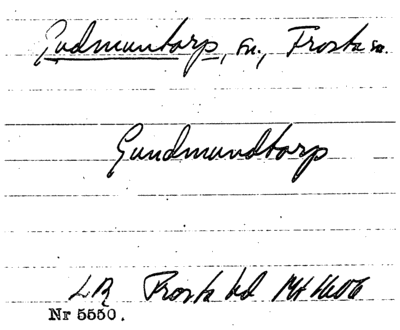 Gudmuntorp, sn., Frosta sn.
Gundmundtorp
LR Frosta hd
Nr 5550.